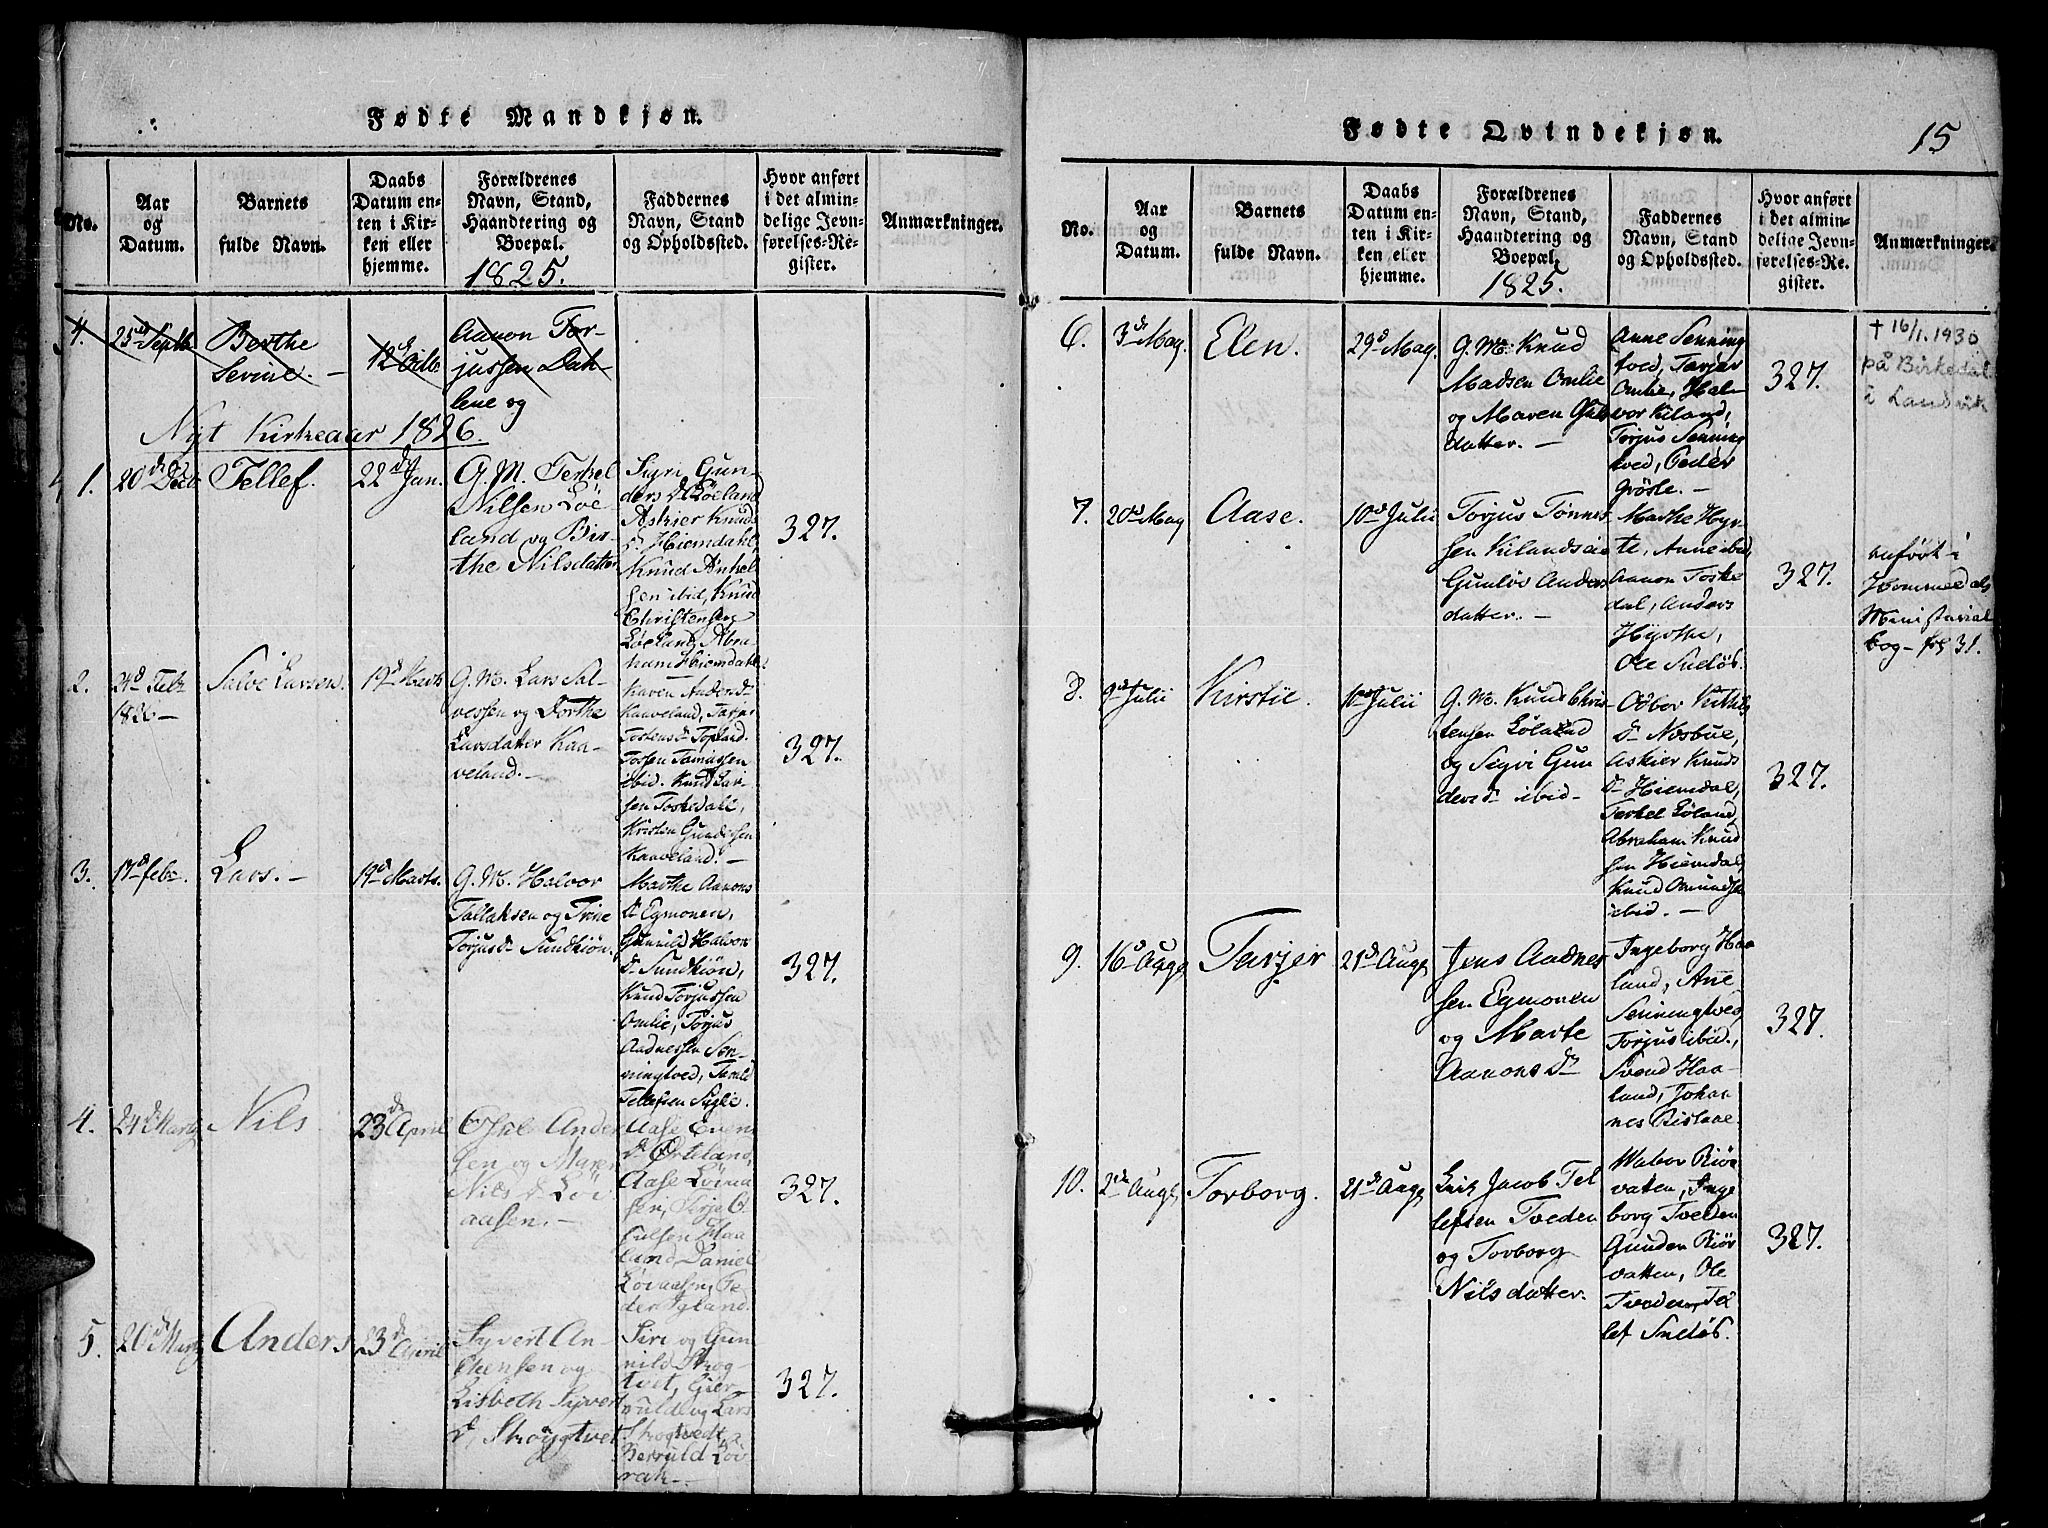 Fødte Mandkjøn.
No.
Aar
og
Datum.
Barnets
fulde Navn.
Daabs
Datum en-
ten i Kir-
ken eller
hjemme.
Forældrenes
Navn, Stand,
Haandtering og
Boepæl.
1825.
Faddernes
Navn, Stand
og Opholdssted.
Hvor anført
i det almin-
delige Jevn-
førelses-Re-
gister.
Anmærkninger.
4.
25d Septb
Berthe
Sevine. -
12d Octbr
Aanon Tor-
jussen Dah-
lene og
Nyt Kirkeaar 1826.
1.
20de Decb
Tellef.
22d Jan.
G. M. Terkel
Nilsen Löe-
land og Bir-
the Nilsdatter
Siri Gun-
ders d. Löeland
Askier Knuds
d. Hiemdahl,
Knud Ankel
sen ibid, Knud
Christensen
Löeland, Abra-
ham Hiemdahl
327.
2.
24d Febr
1826 -
Salve Larsen.
19d Marts
G. M. Lars Sal-
vessen og Dorthe
Larsdatter Kaa-
veland. -
Karen Anders d-
Kaaveland, Tarjer
Tostens d- Topland.
Tossen Tamassen
ibid. Knud Lar-
sen Toskedahl,
Kristen Gundersen
Kaaveland. -
327.
3.
17d febr.
Lars. -
19d Marts.
G. M. Halvor
Tallaksen og Trine
Torjus d- Sundkiön.
Marthe Aanons
d- Egmonen,
Gunnild Halvor
d- Sundkiön,
Knud Torjussen
Omlie, Torjus
Aadnessen Sen-
ningtved,
Tellefsen
327.
4.
24d Marts
Nils
23d April
Ander
sen og Maren
Nils d. Löv
aasen. -
Aase Evens
d. Örteland,
Aase Lövaa
sen, Terje O
lulsen Haa
lund, Daniel
Lövaasen, Pe
der Igland.
327.
5.
20d Marts
Anders
23d April
Syvert An-
kensen og
Lisbeth Syvert
d, Skrogtvet
Siri og Gun
nild Skrog-
tvet, Gier-
vuld og Lars
Skrogtvedt,
Berruld Löv
rak -
327.
Fødte Qvindekjøn.
15
No.
Aar
og
Datum.
Barnets
fulde Navn.
Daabs
Datum en-
ten i Kir-
ken eller
hjemme.
Forældrenes
Navn, Stand,
Haandtering og
Boepæl.
1825.
Faddernes
Navn, Stand
og Opholdssted.
Hvor anført
i det almin-
delige Jevn-
førelses-Re-
gister.
Anmærkninger.
6.
3de May.
Elen.
29d May.
G. M. Knud
Madsen Omlie
og Maren Ols
datter. -
Anne Senning
tved, Tarjer
Omlie, Hal-
vor Kiland,
Torjus Senning
tved, Peder
Gröste. -
327.
+ 16/1.1930
på Birkedal
i Landvik
7.
20d May
Aase.
10d Julii
Torjus Tönnes
sen Kilandseie
Gunlöv Anders
datter. -
Marthe Hyr-
te, Anne ibid,
Aanon Toske
dal, Anders
Hyrthe,
Ole Sudös.
327.
anført i
Hommedals
Ministerial
bog - fol 31.
8.
9d Julii
Kirstie.
10d Julii
G. M. Knud Chris-
tensen Löland
og Segri Gun
ders d- ibid -
Odbor Kittils
d- Nosbue,
Askier Knuds
d- Hiemdal,
Terkel Löland,
Abraham Knud
sen Hiemdal,
Knud Omunds
ibid. -
327.
9.
16d Augs
Tarjer
21d Augs
Jens Aadnes
sen Egmonen
og Marte
Aanons d-
Ingeborg Haa
land, Anne
Senningtved
Torjus ibid.,
Svend Haa-
land, Johan
nes Ristaae.
327.
10.
2de Augs
Torborg.
21d Augs
Jacob Tel
lefsen Tveden
og Torborg
Nilsdatter.
Wabor Riör
vatten, Inge
borg Tveden
Gunder Riör
vatten, Ole
Tveden, Tel
lef Sudös.
327.